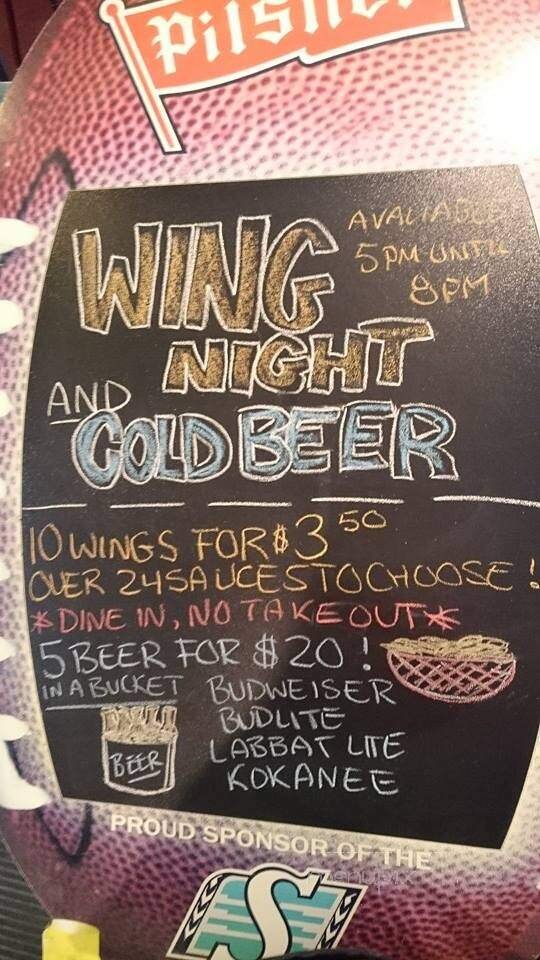 Pilsner
WING
AVALIABLE
5PM UNTIL
8PM
NIGHT
AND
COLD BEER
10 WINGS FOR $3 50
OVER 24 SAUCES TO CHOOSE!
*DINE IN, NO TAKEOUT*
5 BEER FOR $20!
IN A BUCKET BUDWEISER
BUDLITE
BEER
LABBAT LITE
KOKANEE
PROUD SPONSOR OF THE
S